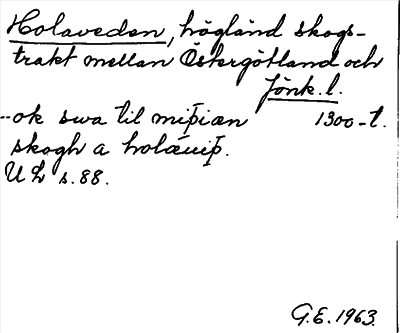 Holaveden, högländ skogs-
trakt mellan Östergötland och
Jönk.l.
--ok swa til miþiæn 1300-t.
skogh a holæuiþ.
U L s.88.
G.E. 1963.